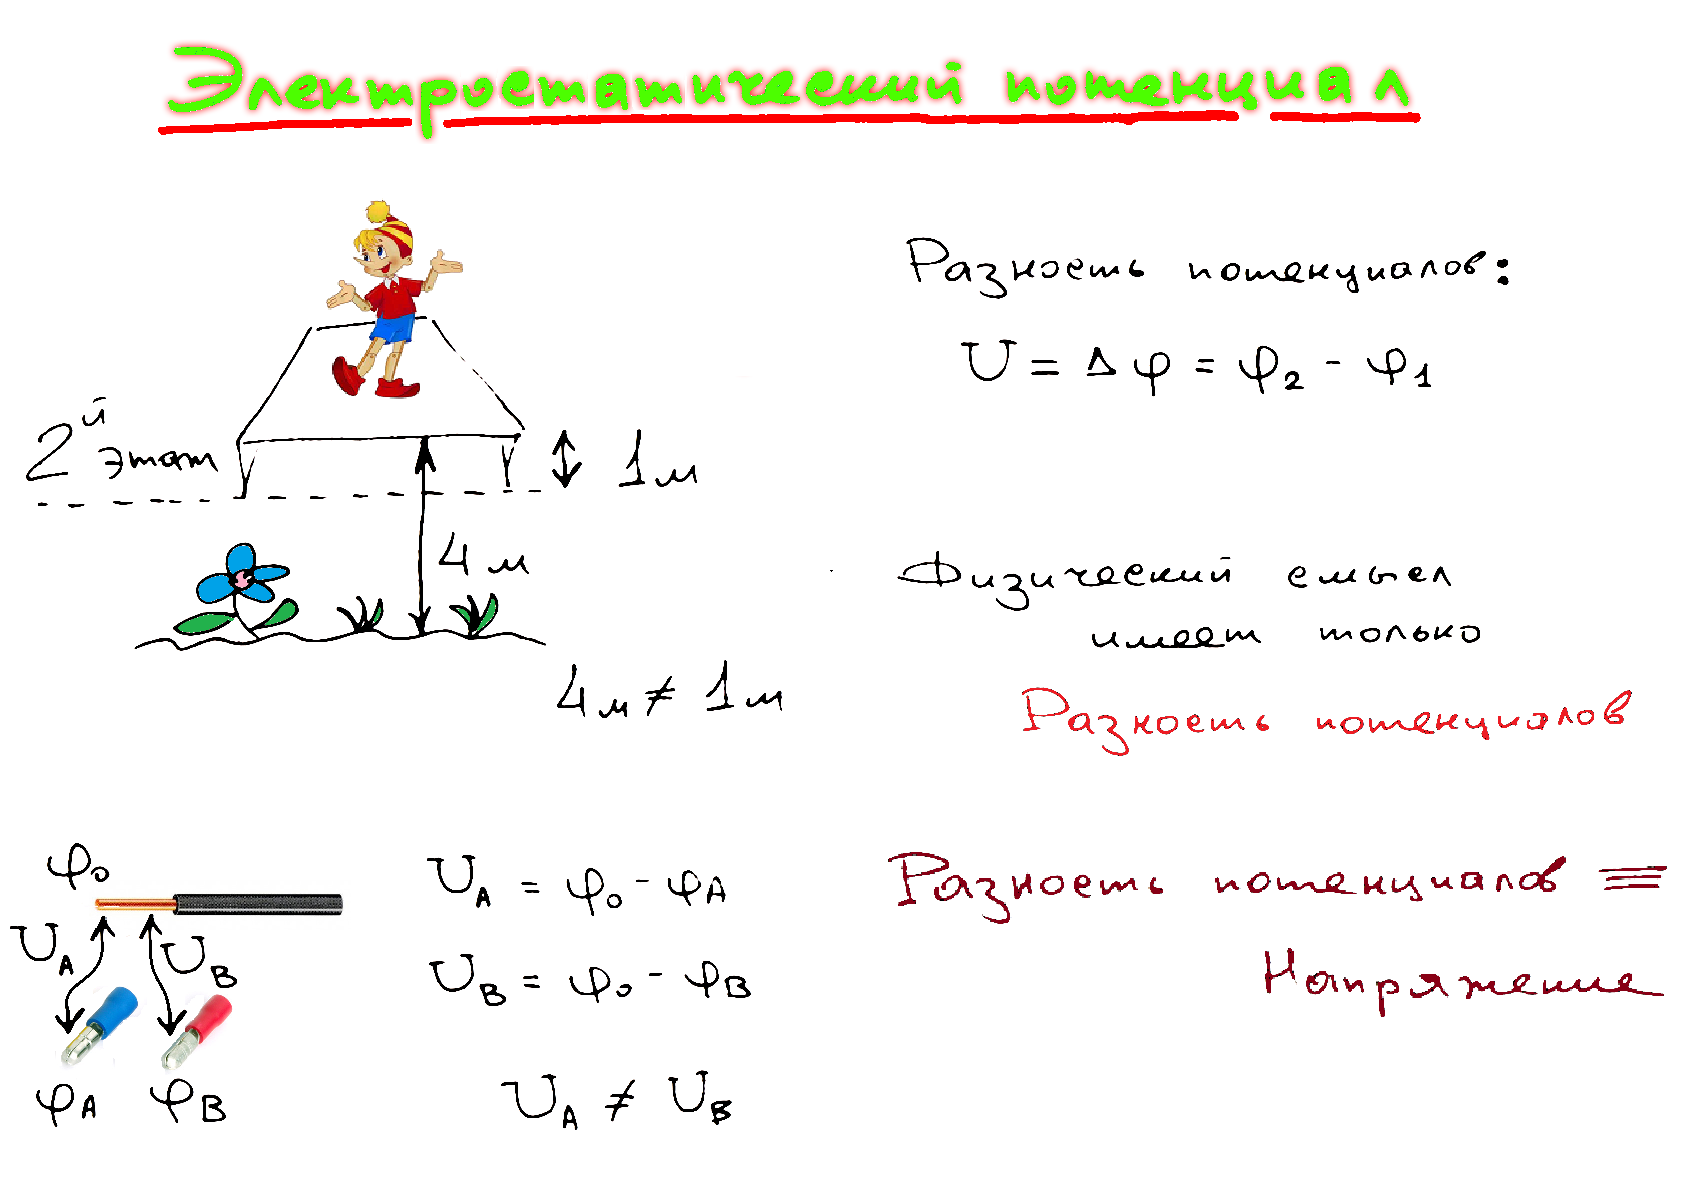 Электростатический потенциал
2й этаж
1м
4м
4м ≠ 1м
Разность потенциалов:
U = Δφ = φ2 - φ1
Физический смысл
имеет только
Разность потенциалов
φ0
UA
UB
φA
φB
UA = φ0 - φA
UB = φ0 - φB
UA ≠ UB
Разность потенциалов ≡
Напряжение